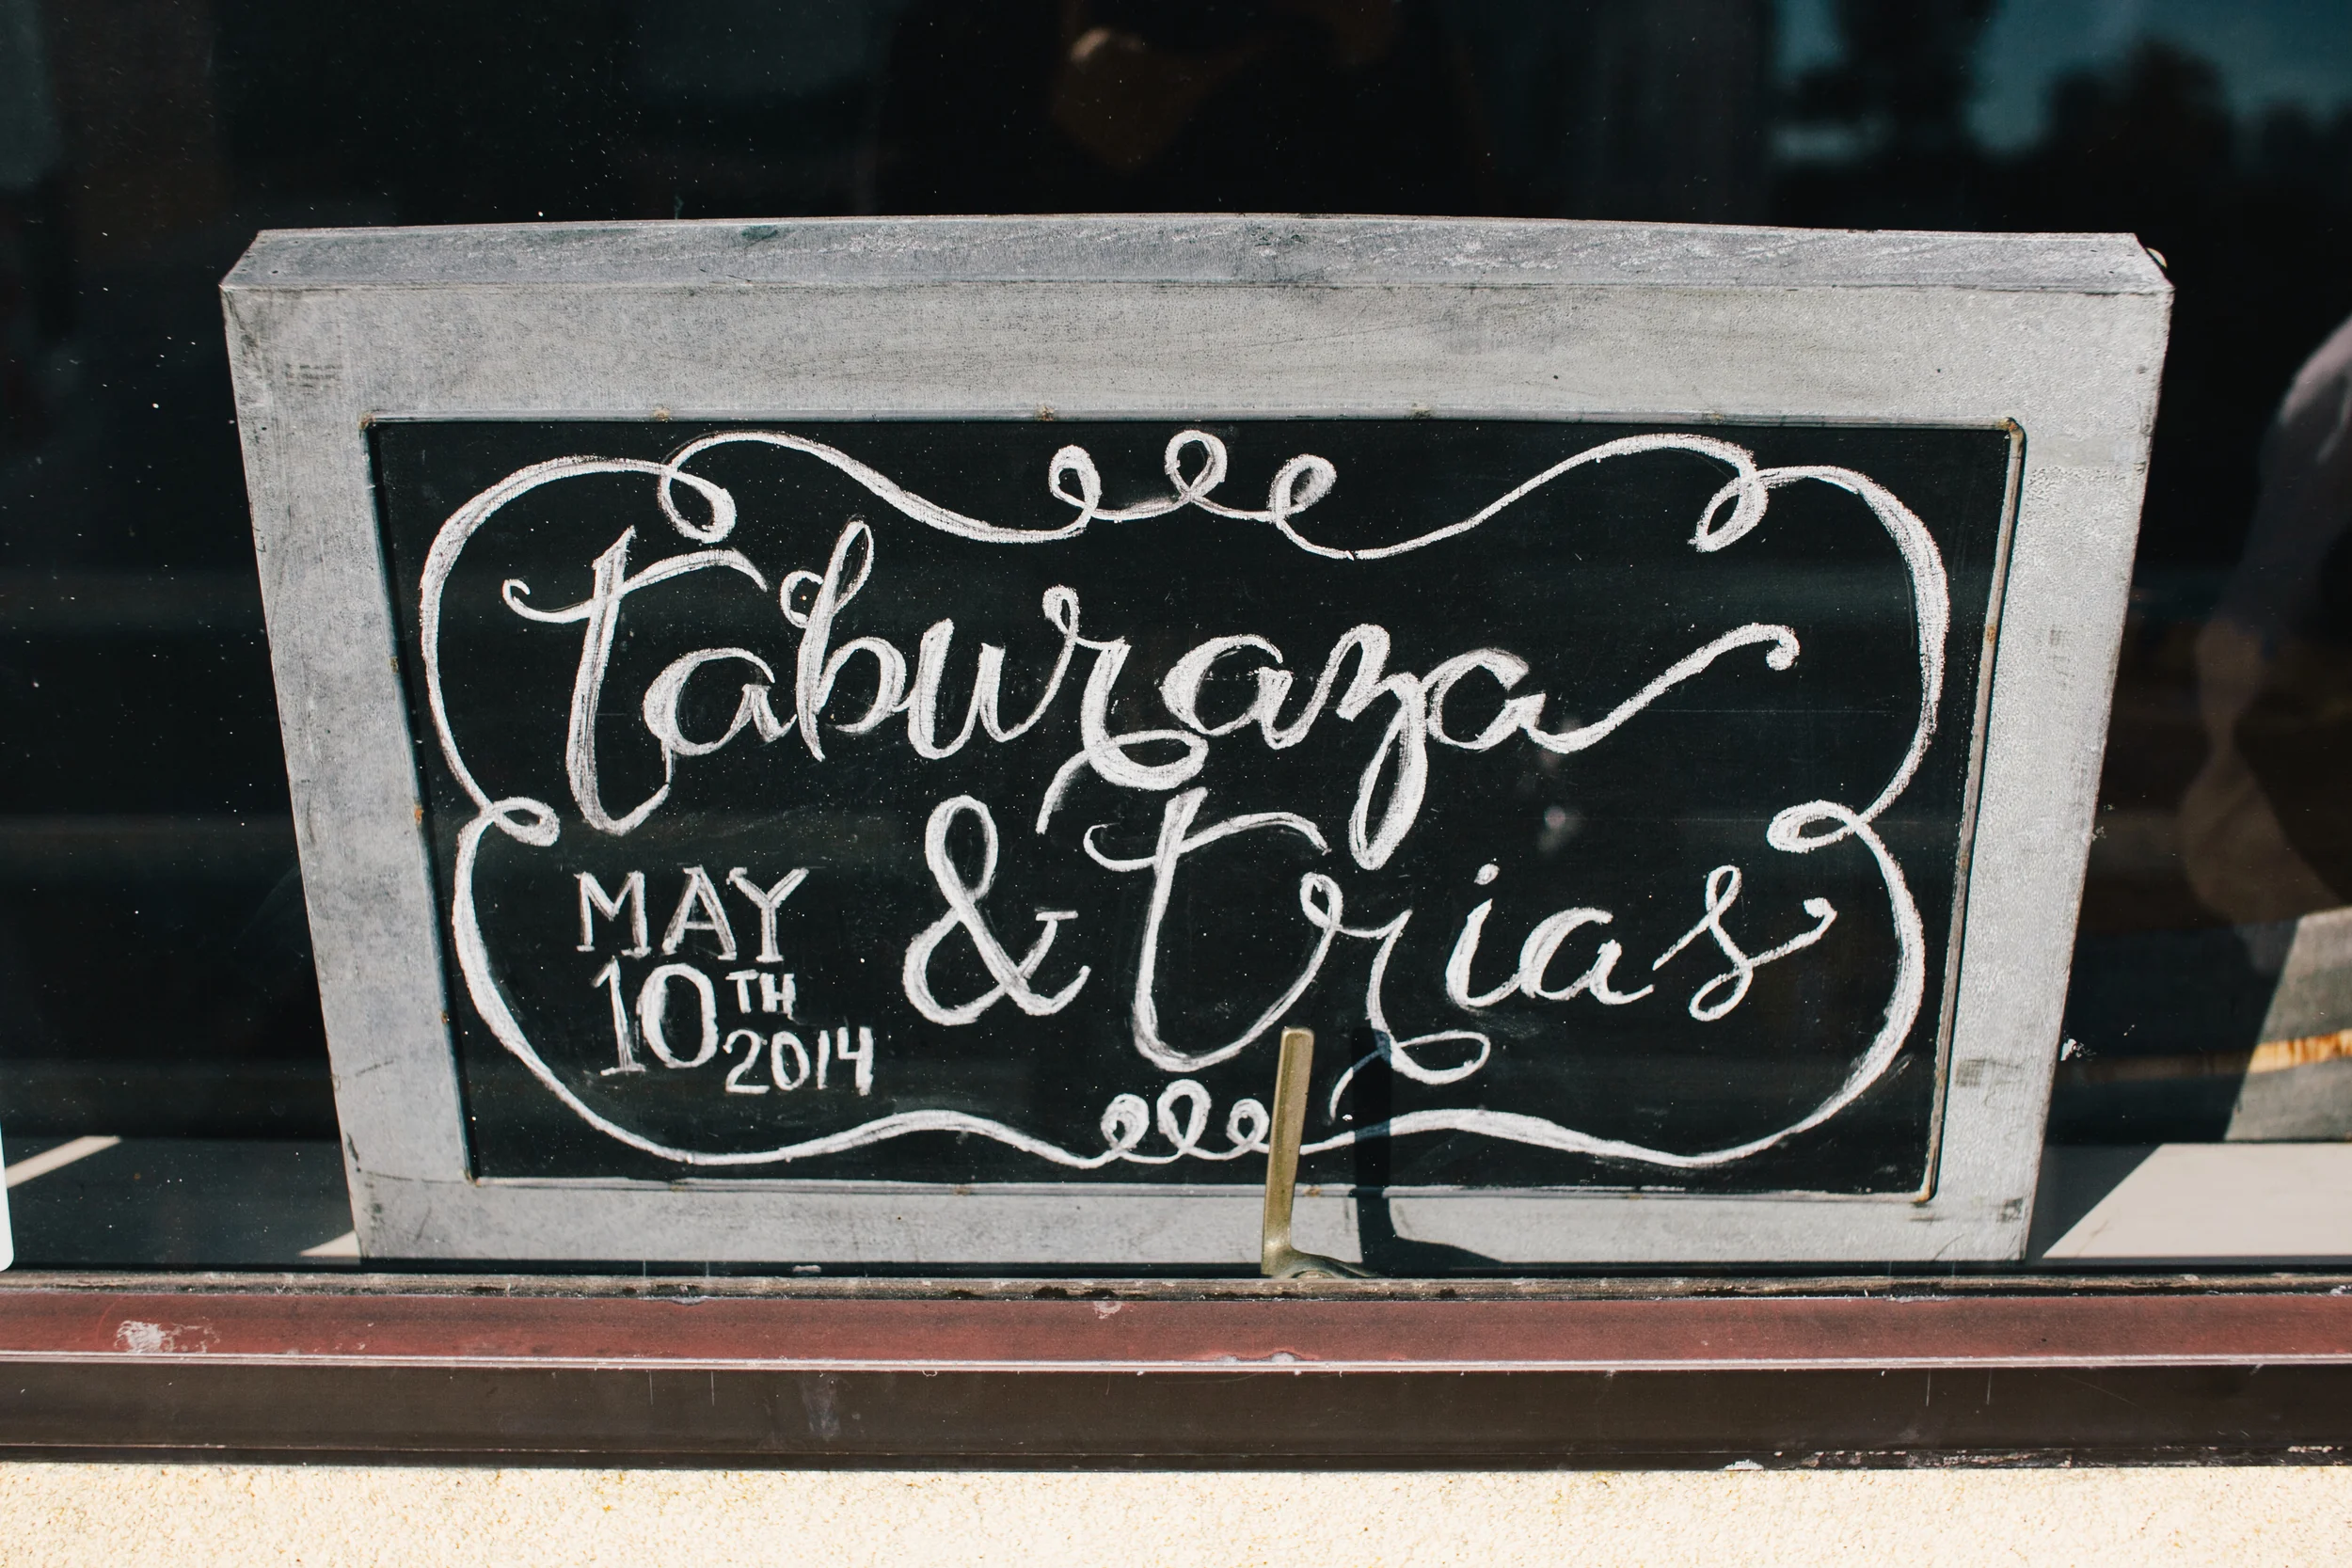 Taburaza
& Trias
MAY
10TH
2014